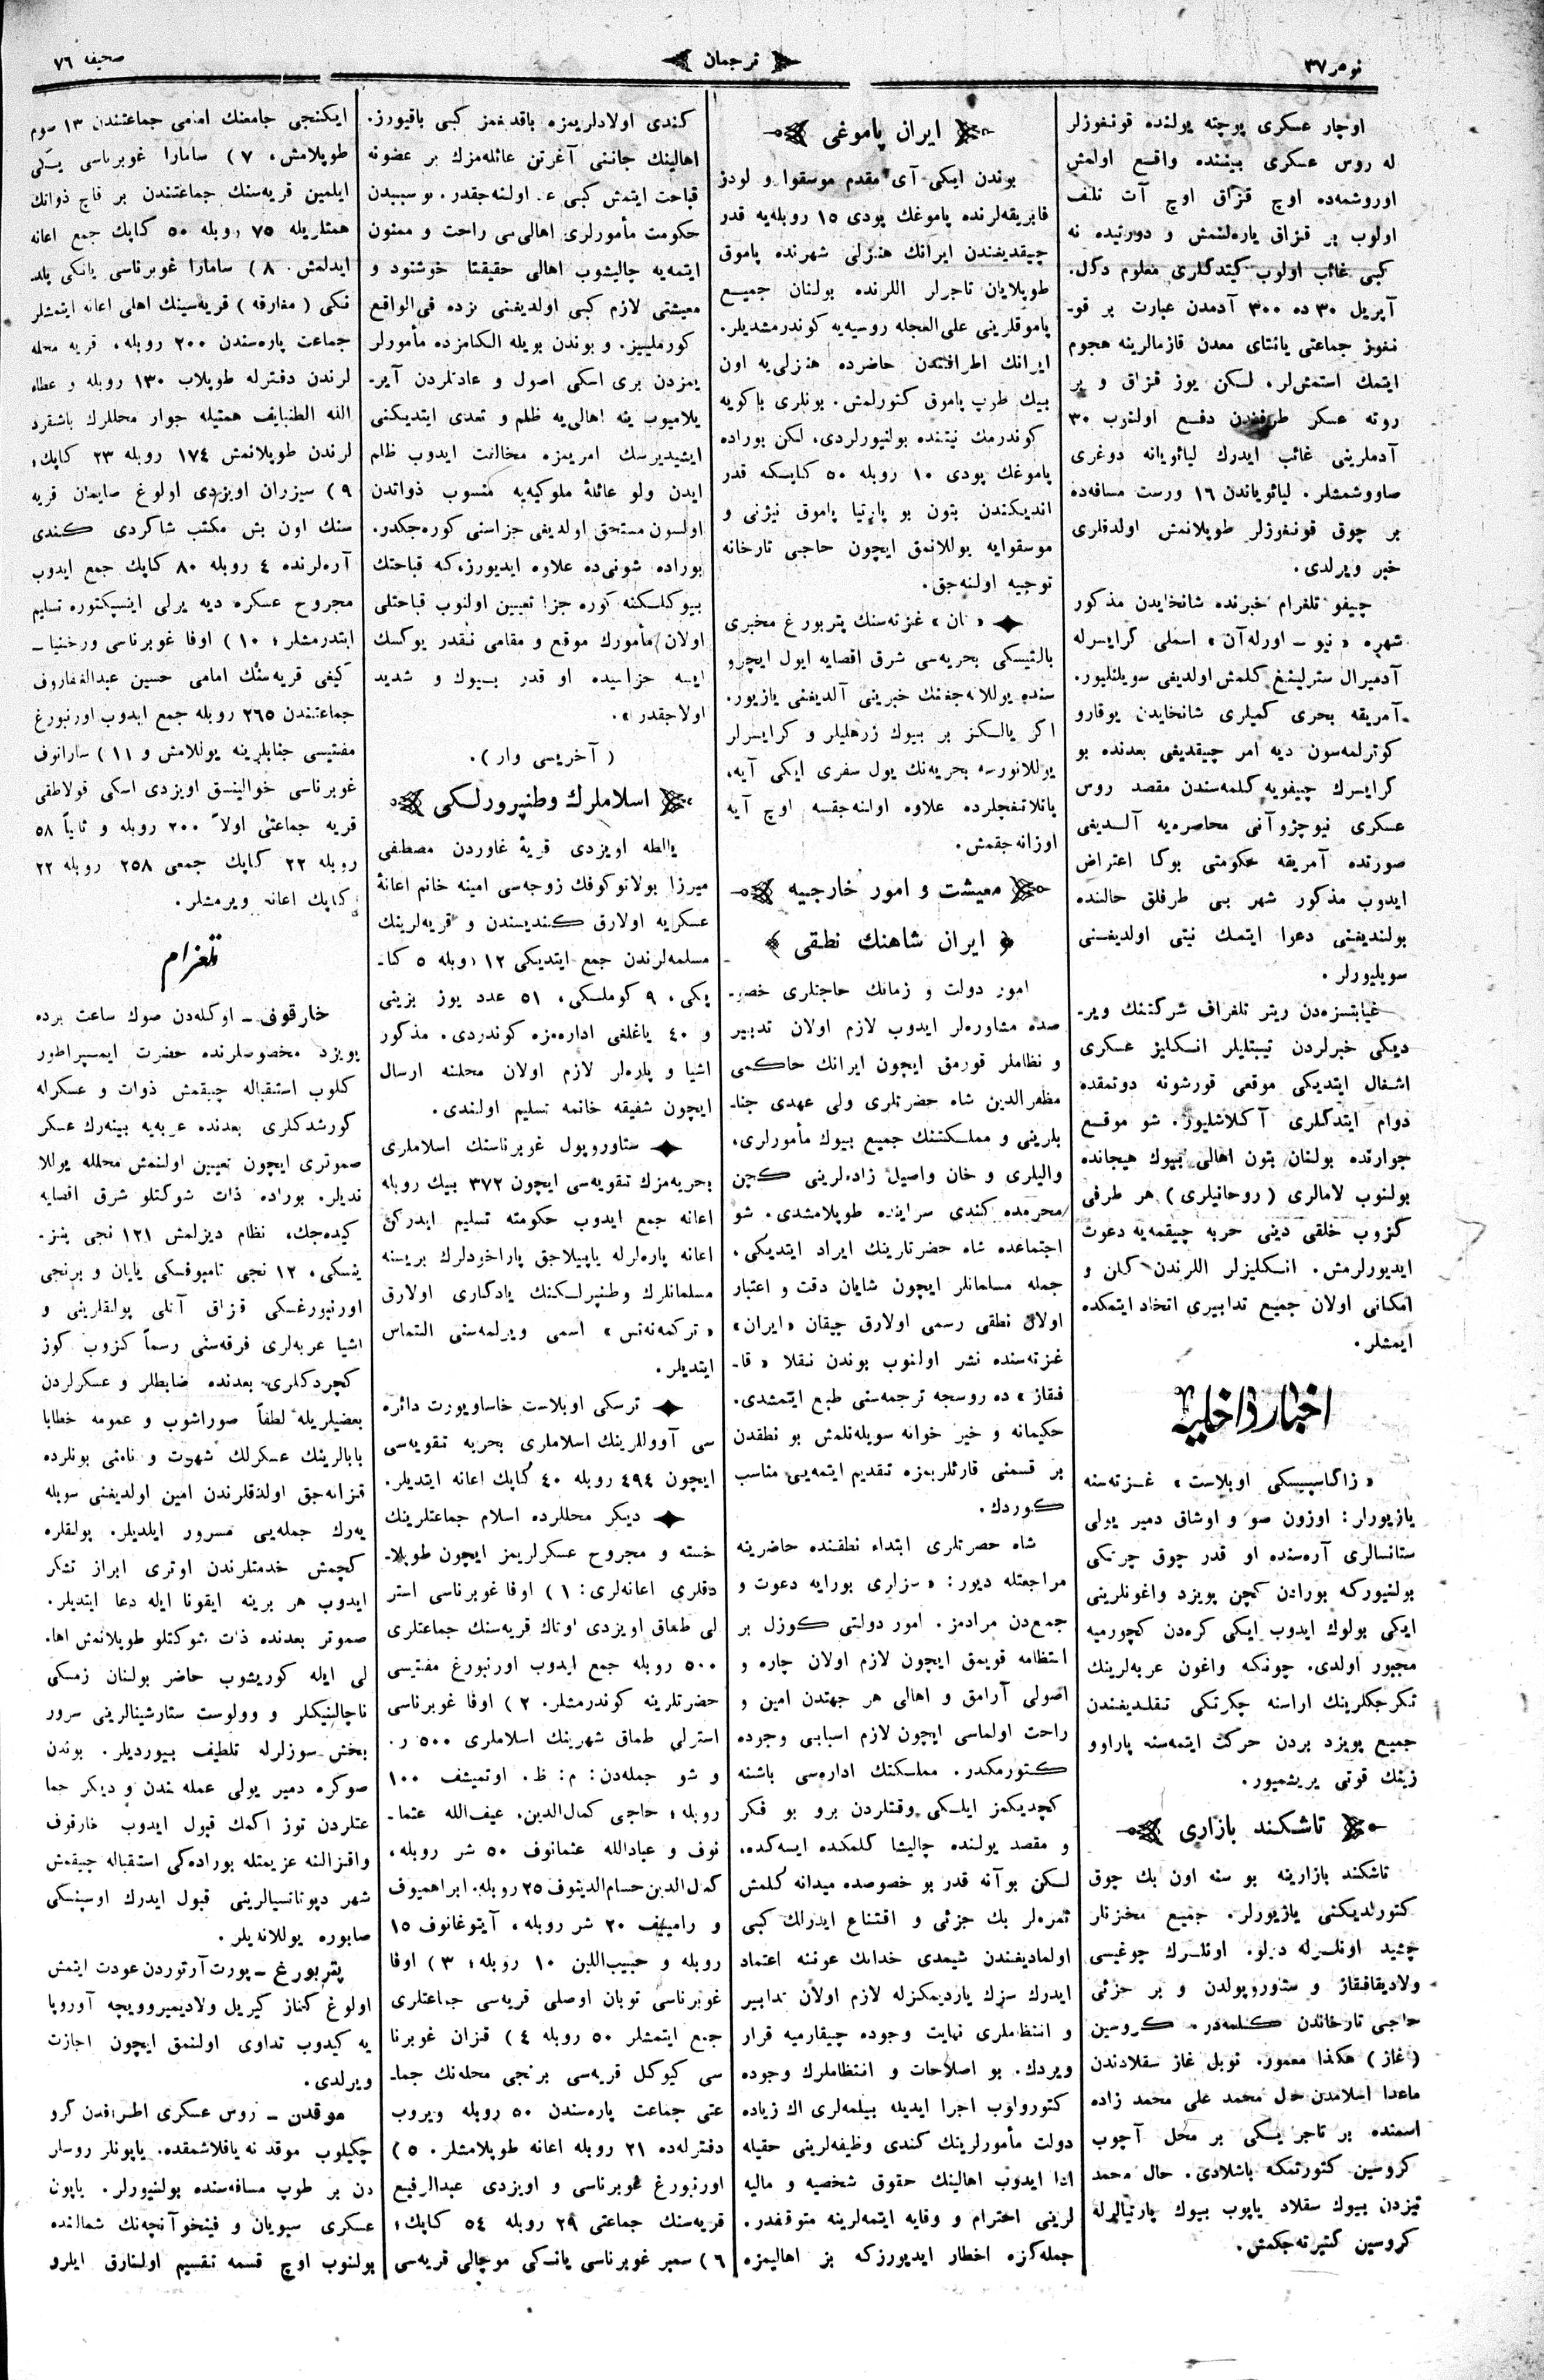 نومر ٣٧
ترجمان
صحیفه ٧٦
اوچار عسکری پوچته یولنده قونغوزلر
له روس عسکری بیننده واقع اولمش
اوروشمه‌ده اوچ قزاق اوچ آت تلف
اولوب بر قزاق یاره‌لنمش و دورتیده نه
کبی غائب اولوب کیتدکلری معلوم دکل.
آپریل ٣٠ ده ٣٠٠ آدمدن عبارت بر قو-
نغوز جماعتی یانتای معدن قازمالرینه هجوم
ایتمك استمش‌لر، لکن یوز قزاق و بر
روته عسکر طرفندن دفع اولنوب ٣٠
آدملرینی غائب ایدرك لیائویانه دوغری
صاووشمشلر. لیائویاندن ١٦ ورست مسافه‌ده
بر چوق قونغوزلر طوپلانمش اولدقلری
خبر ویرلدی.
چیفو تلغرام خبرنده شانخایدن مذکور
شهره «نیو ـ اورله‌آن» اسملی کرایسرله
آدمیرال سترلینغ کلمش اولدیغی سویلنلیور.
آمریقه بحری کمیلری شانخایدن یوقارو
کوترلمه‌سون دیه امر چیقدیغی بعدنده بو
کرایسرك چیفویه کلمه‌سندن مقصد روس
عسکری نیوچژوآنی محاصره‌یه آلدیغی
صورتده آمریقه حکومتی بوکا اعتراض
ایدوب مذکور شهر بی طرفلق حالنده
بولندیغنی دعوا ایتمك نیتی اولدیغنی
سویلیورلر.
غیابتسزه‌دن ریتر تلغراف شرکتنك ویر-
دیکی خبرلردن تیبتلیلر انکلیز عسکری
اشغال ایتدیکی موقعی قورشونه دوتمقده
دوام ایتدکلری آکلاشلیور. شو موقع
جوارنده بولنان بتون اهالی بیوك هیجانده
بولنوب لامالری (روحانیلری) هر طرفی
کزوب خلقی دینی حربه چیقمه‌یه دعوت
ایدیورلرمش. انکلیزلر اللرندن کلان و
امکانی اولان جمیع تدابیری اتخاذ ایتمکده
ایمشلر.
اخبار داخلیه
«زاکاسپیسکی اوبلاست» غزته‌سنه
یازیورلر: اوزون صو و اوشاق دمیر یولی
ستانسالری آره‌سنده او قدر چوق چرتکی
بولنیورکه بورادن کچن پویزد واغونلرینی
ایکی بولوك ایدوب ایکی کره‌دن کچورمیه
مجبور اولدی. چونکه واغون عربه‌لرینك
تکرجکلرینك اراسنه چکرتکی تقلدیغندن
جمیع پویزد بردن حرکت ایتمه‌سنه پاراوو
زینك قوتی یریشمیور.
تاشکند بازاری
تاشکند بازارینه بو سنه اون بك چوق
کتورلدیکنی یازیورلر. جمیع مخزنلر
چشید اونلرله دولو. اونلرك چوغیسی
ولادیقافقاز و ستوروپولدن و بر جزئی
حاجی تارخاندن کلمه‌در. کروسین
(غاز) هکذا معمور. نوبل غاز سقلادندن
ماعدا اسلامدن حال محمد علی محمد زاده
اسمنده بر تاجر یکی بر محل آچوب
کروسین کتورتمکه باشلادی. حال محمد
تیزدن بیوك سقلاد یاپوب بیوك پارتیالرله
کروسین کتیرته‌جکمش.
ایران پاموغی
بوندن ایکی آی مقدم موسقوا و لودز
فابریقه‌لرنده پاموغك پودی ١٥ روبله‌یه قدر
چیقدیغندن ایرانك هنزلی شهرنده پاموق
طوپلایان تاجرلر اللرنده بولنان جمیع
پاموقلرینی علی العجله روسیه‌یه کوندرمشدیلر.
ایرانك اطرافندن حاضرده هنزلی‌یه اون
بیك طرپ پاموق کتورلمش. بونلری باکویه
کوندرمك نیتنده بولنیورلردی، لکن بوراده
پاموغك پودی ١٠ روبله ٥٠ کاپیکه قدر
اندیکندن بتون بو پارتیا پاموق نیژنی و
موسقوایه یوللانمق ایچون حاجی تارخانه
توجیه اولنه‌جق.
«نان» غزته‌سنك پتربورغ مخبری
بالتیسکی بحریه‌سی شرق اقصایه ایول ایچرو
سنده یوللانه‌جغنك خبرینی آلدیغنی یازیور.
اکر یالکز بر بیوك زرهلیلر و کرایسرلر
یوللانورسه بحریه‌نك یول سفری ایکی آیه،
پاتلاتغچلرده علاوه اولنه‌جقسه اوچ آیه
اوزانه‌جقمش.
معیشت و امور خارجیه
ایران شاهنك نطقی
امور دولت و زمانك حاجتلری خصو-
صده مشاوره‌لر ایدوب لازم اولان تدبیر
و نظاملر قورمق ایچون ایرانك حاکمی
مظفر الدین شاه حضرتلری ولی عهدی جنا-
بلرینی و مملکتنك جمیع بیوك مأمورلری،
والیلری و خان واصیل زاده‌لرینی کچن
محرمده کندی سراینده طوپلامشدی. شو
اجتماعده شاه حضرتلرینك ایراد ایتدیکی،
جمله مسلمانلر ایچون شایان دقت و اعتبار
اولان نطقی رسمی اولارق چیقان «ایران»
غزته‌سنده نشر اولنوب بوندن نقلا «قا-
فقاز» ده روسجه ترجمه‌سنی طبع ایتمشدی.
حکیمانه و خیر خوانه سویله‌نلمش بو نطقدن
بر قسمنی قارئلریمزه تقدیم ایتمه‌یی مناسب
کوردك.
شاه حضرتلری ابتداء نطقنده حاضرینه
مراجعتله دیور: «سزلری بورایه دعوت و
جمع‌دن مرادمز. امور دولتی کوزل بر
انتظامه قویمق ایچون لازم اولان چاره و
اصولی آرامق و اهالی هر جهتدن امین و
راحت اولماسی ایچون لازم اسبابی وجوده
کتورمکدر. مملکتك اداره‌سی باشنه
کچدیکمز ایلکی وقتلردن برو بو فکر
و مقصد یولنده چالیشا کلمکده ایسه‌کده،
لکن بو آنه قدر بو خصوصده میدانه کلمش
ثمره‌لر بك جزئی و اقتناع ایدرلك کبی
اولمادیغندن شیمدی خدانك عوننه اعتماد
ایدرك سزك یاردیمکزله لازم اولان تدابیر
و انتظاملری نهایت وجوده چیقارمیه قرار
ویردك. بو اصلاحات و انتظاملرك وجوده
کتورولوب اجرا ایدیله بیلمه‌لری اك زیاده
دولت مأمورلرینك کندی وظیفه‌لرینی حقیله
ادا ایدوب اهالینك حقوق شخصیه و مالیه
لرینی احترام و وقایه ایتمه‌لرینه متوقفدر.
جمله‌کزه اخطار ایدیورزکه بز اهالیمزه
کندی اولادلریمزه باقدیغمز کبی باقیورز.
اهالینك جاننی آغرتن عائله‌مزك بر عضونه
قباحت ایتمش کبی عد اولنه‌جقدر. بو سببدن
حکومت مأمورلری اهالی‌یی راحت و ممنون
ایتمه‌یه چالیشوب اهالی حقیقتا خوشنود و
معیشتی لازم کبی اولدیغنی بزده فی‌الواقع
کورملیییز. و بوندن بویله الکامزده مأمورلر
یمزدن بری اسکی اصول و عادتلردن آیر-
یلامیوب ینه اهالی‌یه ظلم و تعدی ایتدیکنی
ایشیدیرسك امریمزه مخالفت ایدوب ظلم
ایدن ولو عائلۀ ملوکیه‌یه منسوب ذواتدن
اولسون مستحق اولدیغی جزاسنی کوره‌جکدر.
بوراده شونی‌ده علاوه ایدیورز،که قباحتك
بیوکلکنه کوره جزا تعیین اولنوب قباحتلی
اولان مأمورك موقع و مقامی نقدر یوکسك
ایسه جزاسیده او قدر بیوك و شدید
اولاجقدر».
(آخریسی وار).
اسلاملرك وطنپرورلکی
یالطه اویزدی قریۀ غاوردن مصطفی
میرزا بولاتوکوفك زوجه‌سی امینه خانم اعانۀ
عسکریه اولارق کندیسندن و قریه‌لرینك
مسلمه‌لرندن جمع ایتدیکی ١٢ روبله ٥ کا-
پکی، ٩ کوملکی، ٥١ عدد یوز بزینی
و ٤٠ یاغلغی اداره‌مزه کوندردی. مذکور
اشیا و پاره‌لر لازم اولان محلنه ارسال
ایچون شفیقه خانمه تسلیم اولندی.
ستاوروپول غوبرناسنك اسلاملری
بحریه‌مزك تقویه‌سی ایچون ٣٧٢ بیك روبله
اعانه جمع ایدوب حکومته تسلیم ایدرکن
اعانه پاره‌لرله یاپیلاجق پاراخودلرك بریسنه
مسلمانلرك وطنپرلکنك یادکاری اولارق
«ترکمه‌نه‌تس» اسمی ویرلمه‌سنی التماس
ایتدیلر.
ترسکی اوبلاست خاساوپورت دائره
سی آووللرینك اسلاملری بحریه تقویه‌سی
ایچون ٤٩٤ روبله ٤٠ کاپك اعانه ایتدیلر.
دیکر محللرده اسلام جماعتلرینك
خسته و مجروح عسکرلریمز ایچون طوپلا-
دقلری اعانه‌لری: ١) اوفا غوبرناسی استر
لی طماق اویزدی اوتاك قریه‌سنك جماعتلری
٥٠٠ روبله جمع ایدوب اورنبورغ مفتیسی
حضرتلرینه کوندرمشلر. ٢) اوفا غوبرناسی
استرلی طماق شهرینك اسلاملری ٥٠٠ ر.
و شو جمله‌دن: م: ظ. اوتمیشف ١٠٠
روبله، حاجی کمال‌الدین، عیف‌الله عثما-
نوف و عبادالله عثمانوف ٥٠ شر روبله،
کمال‌الدین حسام‌الدینوف ٢٥ روبله، ابراهمیوف
و رامییف ٢٠ شر روبله، آیتوغانوف ١٥
روبله و حبیب‌اللین ١٠ روبله؛ ٣) اوفا
غوبرناسی توبان اوصلی قریه‌سی جماعتلری
جمع ایتمشلر ٥٠ روبله ٤) قزان غوبرنا
سی کیوکل قریه‌سی برنجی محله‌نك جما-
عتی جماعت پاره‌سندن ٥٠ روبله ویروب
دفترله‌ده ٢١ روبله اعانه طوپلامشلر. ٥)
اورنبورغ غوبرناسی و اویزدی عبدالرفیع
قریه‌سنك جماعتی ٢٩ روبله ٥٤ کاپك؛
٦) سمبر غوبرناسی یانکی موچالی قریه‌سی
ایکنجی جامعنك امامی جماعتندن ١٣ سوم
طوپلامش، ٧) سامارا غوبرناسی یکی
ایلمین قریه‌سنك جماعتندن بر قاچ ذواتك
همتلریله ٧٥ روبله ٥٠ کاپك جمع اعانه
ایدلمش. ٨) سامارا غوبرناسی یانکی یلد
نکی (مفارقه) قریه‌سینك اهلی اعانه ایتمشلر
جماعت پاره‌سندن ٢٠٠ روبله، قریه محله
لرندن دفترله طوپلاب ١٣٠ روبله و عطاء
الله الطنبایف همتیله جوار محللرك باشقرد
لرندن طوپلانمش ١٧٤ روبله ٢٣ کاپك؛
٩) سیزران اویزدی اولوغ صایمان قریه
سنك اون بش مکتب شاکردی کندی
آره‌لرنده ٤ روبله ٨٠ کاپك جمع ایدوب
مجروح عسکره دیه یرلی اینسپکتوره تسلیم
ایتدرمشلر؛ ١٠) اوفا غوبرناسی ورخنیا ـ
کیغی قریه‌سنك امامی حسین عبدالغفاروف
جماعتندن ٢٦٥ روبله جمع ایدوب اورنبورغ
مفتیسی جنابلرینه یوللامش و ١١) ساراتوف
غوبرناسی خوالینسق اویزدی اسکی قولاطقی
قریه جماعتی اولاً ٢٠٠ روبله و ثانیاً ٥٨
روبله ٢٢ کاپك جمعی ٢٥٨ روبله ٢٢
کاپك اعانه ویرمشلر.
تلغرام
خارقوف ـ اوکله‌دن صوك ساعت برده
پویزد مخصوصلرنده حضرت ایمپراطور
کلوب استقباله چیقمش ذوات و عسکرله
کورشدکلری بعدنده عربه‌یه بینه‌رك عسکر
صموتری ایچون تعیین اولنمش محلله یوللا
ندیلر. بوراده ذات شوکتلو شرق اقصایه
کیده‌جك، نظام دیزلمش ١٢١ نجی پنز-
ینسکی، ١٢ نجی تامبوفسکی پایان و برنجی
اورنبورغسکی قزاق آتلی پولقلرینی و
اشیا عربه‌لری فرقه‌سنی رسماً کزوب کوز
کچردکلری بعدنده ضابطلر و عسکرلردن
بعضیلریله لطفاً صوراشوب و عمومه خطابا
بابالرینك عسکرلك شهرت و نامنی بونلرده
قزانه‌جق اولدقلرندن امین اولدیغنی سویله
یه‌رك جمله‌یی مسرور ایلدیلر. پولقلره
کچمش خدمتلرندن اوتری ابراز تشکر
ایدوب هر برینه ایقونا ایله دعا ایتدیلر.
صموتر بعدنده ذات شوکتلو طوپلانمش اها-
لی ایله کوریشوب حاضر بولنان زمسکی
ناچالنیکلر و وولوست ستارشینالرینی سرور
بخش سوزلرله تلطیف بیوردیلر. بوندن
صوکره دمیر یولی عمله‌سندن و دیکر جما
عتلردن توز اکمك قبول ایدوب خارقوف
واقزالنه عزیمتله بوراده‌کی استقباله چیقمش
شهر دپوتاتسیالرینی قبول ایدرك اوسپنسکی
صابوره یوللاندیلر.
پتربورغ ـ پورت آرتوردن عودت ایتمش
اولوغ کناز کیریل ولادیمیروویچه آوروپا
یه کیدوب تداوی اولنمق ایچون اجازت
ویرلدی.
موقدن ـ روس عسکری اطرافدن کرو
چکیلوب موقدنه یاقلاشمقده. یاپونلر روسلر
دن بر طوپ مسافه‌سنده بولنیورلر. یاپون
عسکری سیویان و فینخوآنچه‌نك شمالنده
بولنوب اوچ قسمه تقسیم اولنارق ایلرو